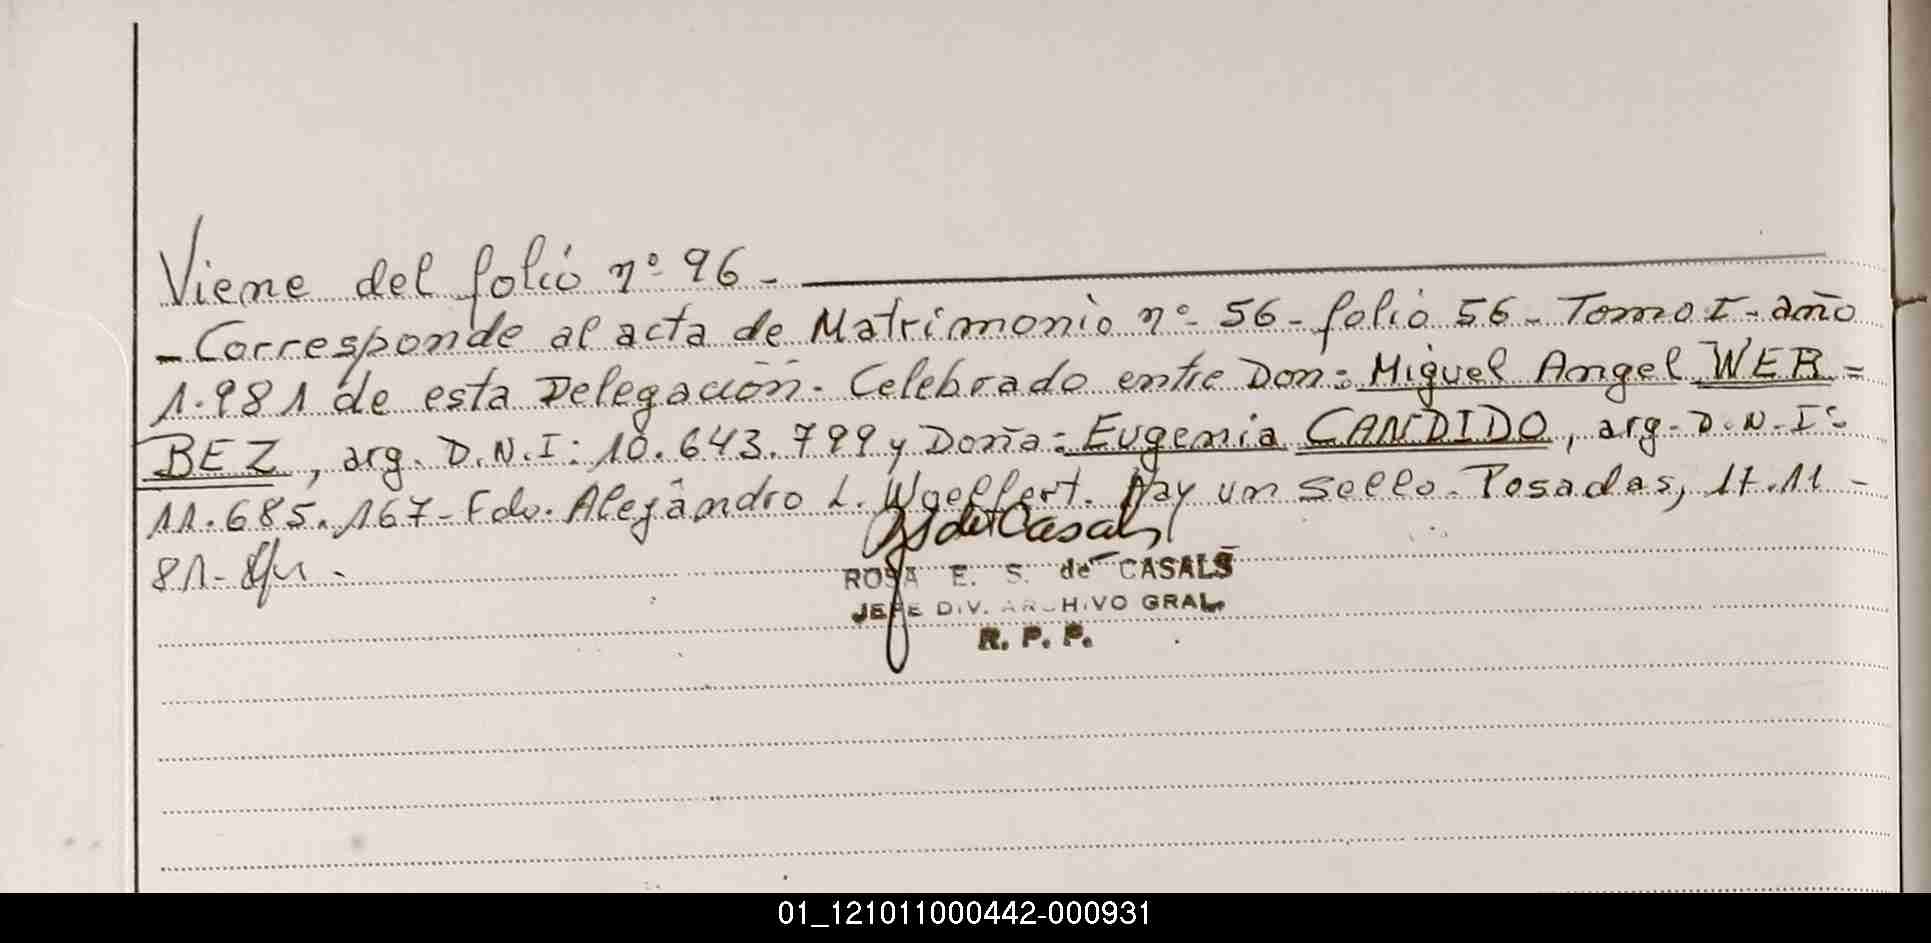 Viene del folio nº 96 -
- Corresponde al acta de Matrimonio nº 56 - folio 56 - Tomo I - año
1.981 de esta Delegación - Celebrado entre Don: Miguel Angel WER=
BEZ, arg. D.N.I: 10.643.799 y Doña: Eugenia CANDIDO, arg. D.N.I:
11.685.167 - Fdo. Alejandro L. Woelfert. Hay un sello. Posadas, 17.11 -
81 -
ROSA E. S. de CASALS
JEFE DIV. ARCHIVO GRAL.
R. P. P.
01_121011000442-000931